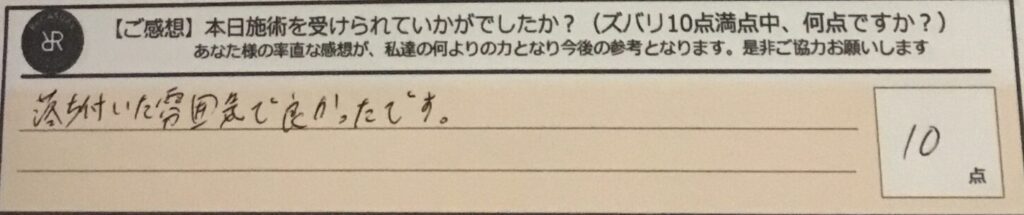 【ご感想】本日施術を受けられていかがでしたか？（ズバリ10点満点中、何点ですか？）
あなた様の率直な感想が、私達の何よりの力となり今後の参考となります。是非ご協力お願いします
落ち付いた雰囲気で良かったです。
10
点